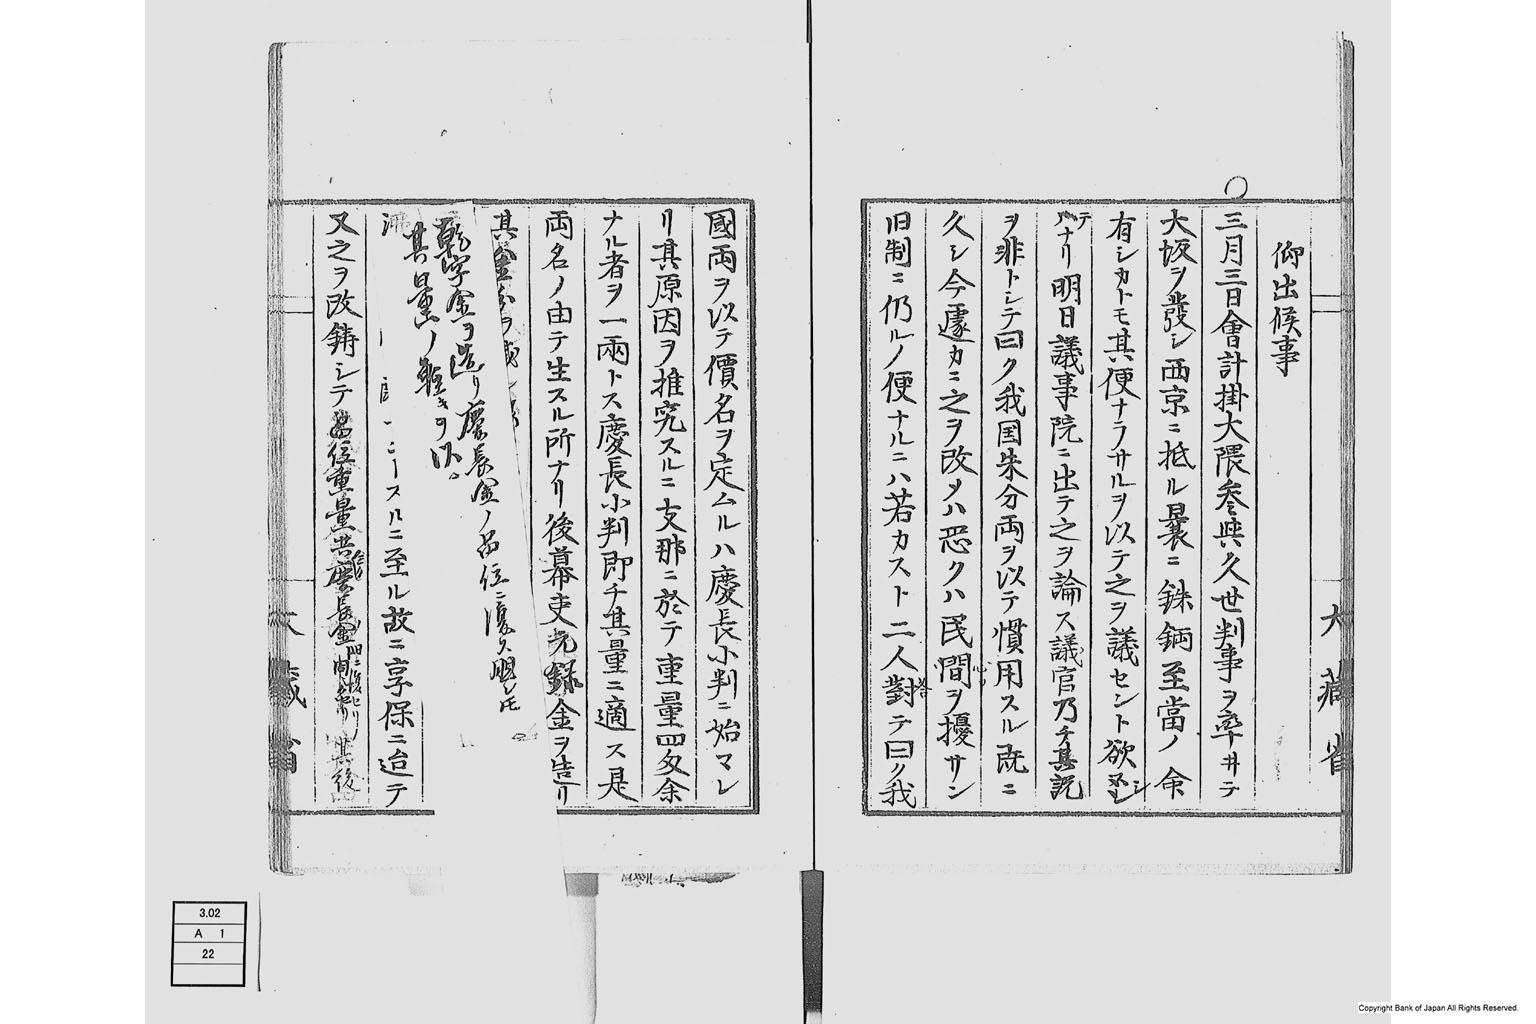 仰出候事
三月三日會計掛大隈參與久世判事ヲ率井テ
大坂ヲ發シ西京ニ抵ル曩ニ銖鋼至當ノ命
有シカトモ其便ナラサルヲ以テ之ヲ議セント欲シ
テナリ明日議事院ニ出テ之ヲ論ス議官乃チ其説
ヲ非トシテ曰ク我国朱分両ヲ以テ慣用スル既ニ
久シ今遽カニ之ヲ改メハ恐クハ民間ヲ擾サン
旧制ニ仍ルノ便ナルニハ若カスト二人對テ曰ク我
答
心
國両ヲ以テ價名ヲ定ムルハ慶長小判ニ始マレ
リ其原因ヲ推究スルニ支那ニ於テ重量四匁余
ナル者ヲ一兩トス慶長小判即チ其量ニ適ス是
両名ノ由テ生スル所ナリ後幕吏元録金ヲ造リ
其金
乾字金ヲ造リ慶長金ノ品位ニ復
其量ノ軽キヲ以
スルニ至ル故ニ享保ニ迨テ
又之ヲ改鋳シテ品位重量共慶長金
其後
大藏省
大藏省
3.02
A 1
22
Copyright Bank of Japan All Rights Reserved.